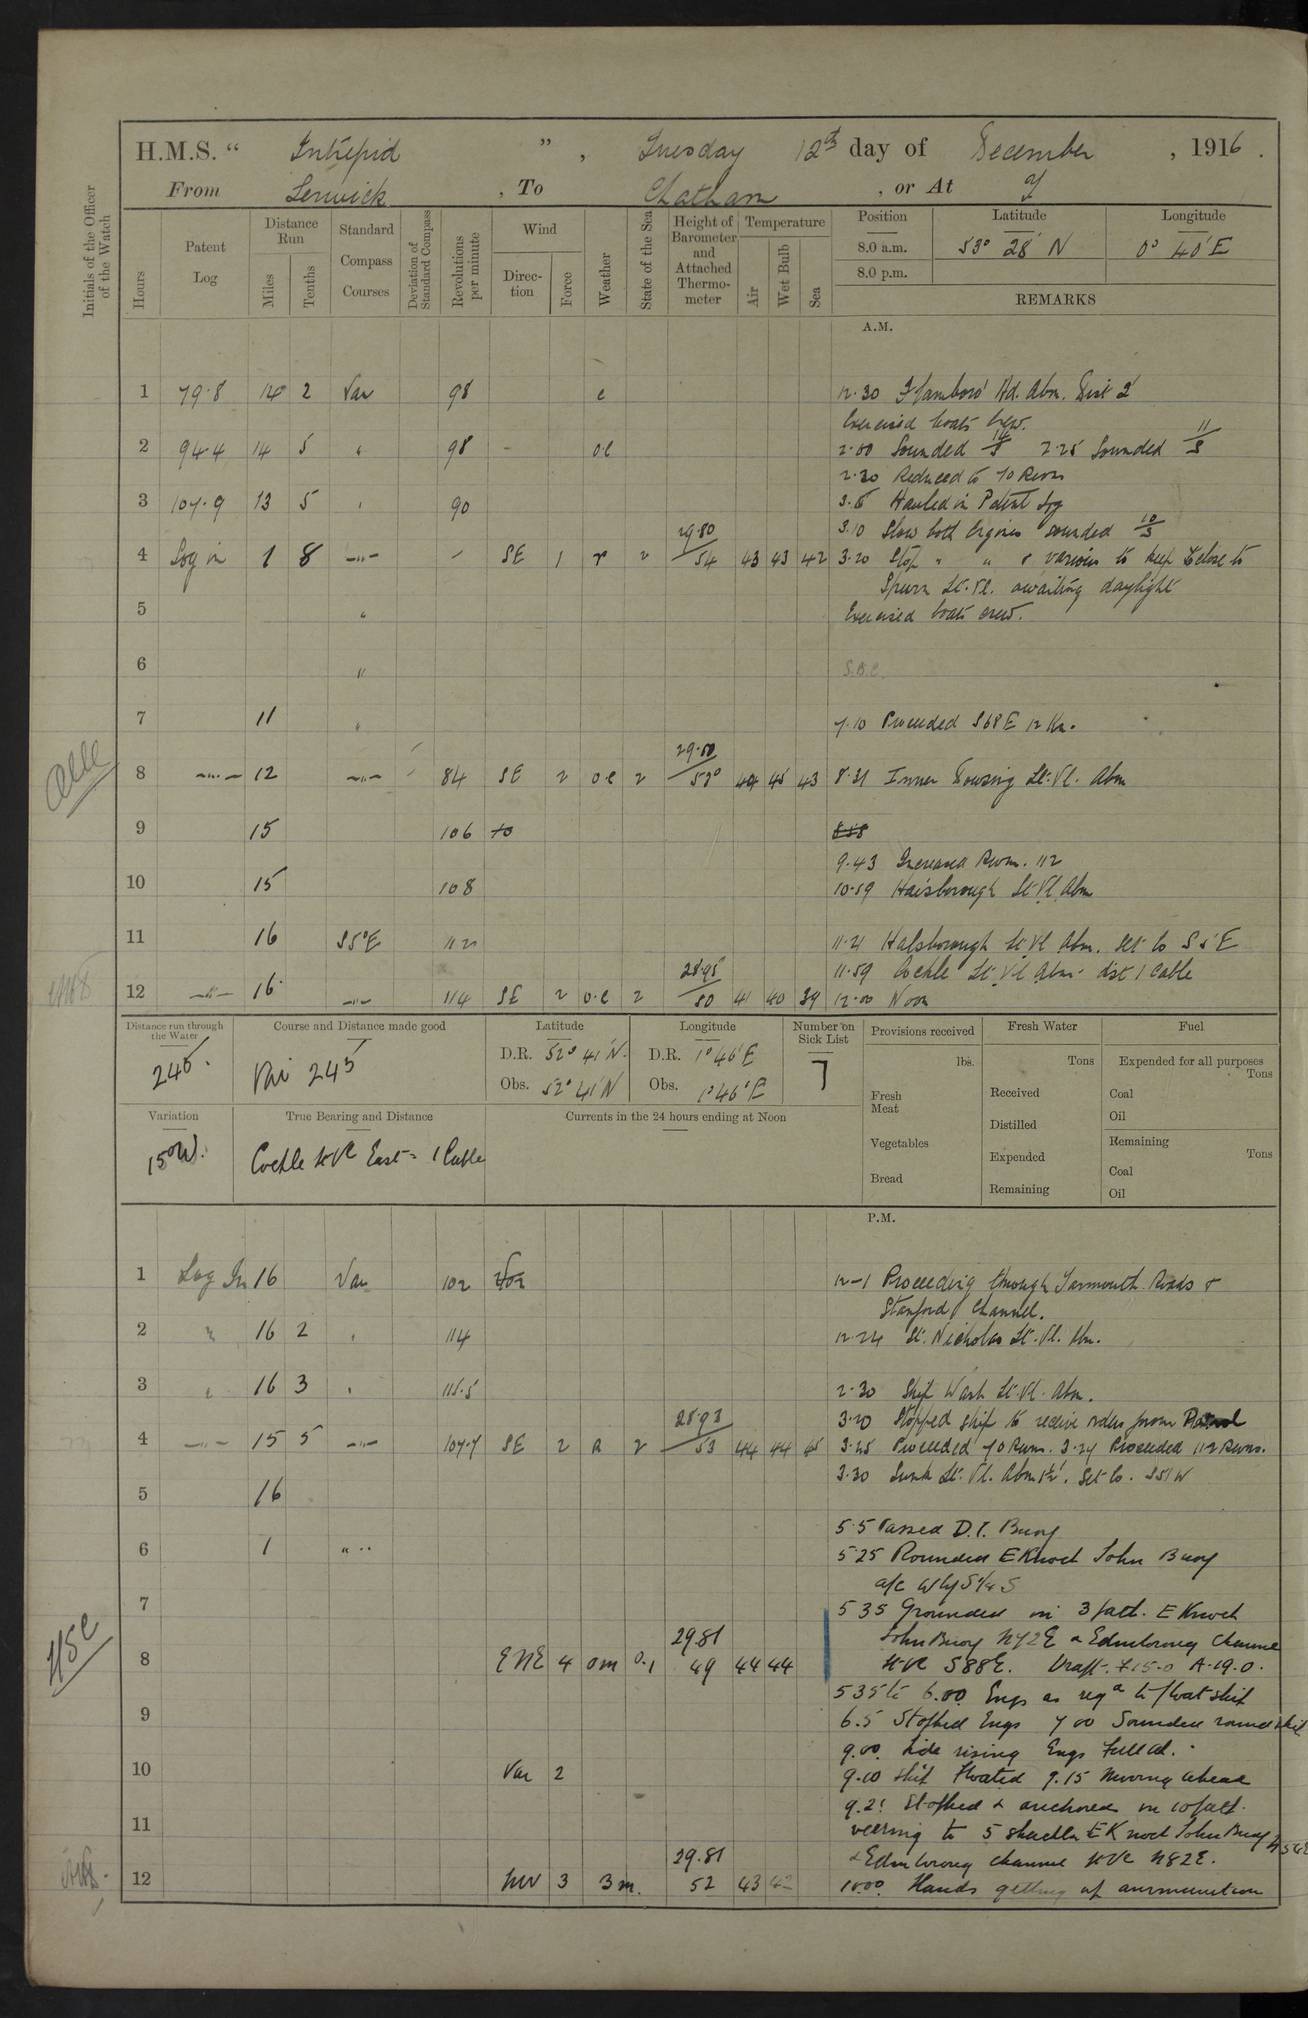 H.M.S. “ Intrepid ” , Tuesday 12th day of December , 1916 .
From Lerwick , To Chatham , or At
Initials of the Officer of the Watch
Hours
Patent Log
Distance Run
Miles
Tenths
Standard Compass Courses
Deviation of Standard Compass
Revolutions per minute
Wind
Direction
Force
Weather
State of the Sea
Height of Barometer and Attached Thermometer
Temperature
Air
Wet Bulb
Sea
Position Latitude Longitude
8.0 a.m. 53° 28' N 0° 40' E
8.0 p.m.
REMARKS
A.M.
1 79.8 14 2 Var 98 c 12.30 Flamboro' Hd. Abm. Dist 2'
Exercised boats crew.
2 94.4 14 5 " 98 - oc 2.00 Sounded 14/S 2.25 Sounded 11/S
2.30 Reduced to 70 Revs
3 107.9 13 5 " 90 3.5 Hauled in Patent Log
29.80 3.10 Slow both Engines sounded 10/S
4 Log in 1 8 -"- - SE 1 r 2 54 43 43 42 3.20 Stop " " & various to keep close to
Spurn Lt. Vl. awaiting daylight
5 " Exercised boats crew.
6 " S.B.C.
7 11 " 7.10 Proceeded S68E 12 Kn.
29.50
8 -"- 12 -"- - 84 SE 2 o.c 2 52° 44 45 43 8.31 Inner Dowsing Lt. Vl. Abm
9 15 106 8.58
9.43 Increased Revn. 112
10 15 108 10.59 Haisborough Lt. Vl. Abm
11 16 S5°E 112 11.21 Haisborough Lt Vl Abm. Set Co S5°E
28.95 11.59 Cockle Lt. Vl Abm. dist 1 Cable
12 -"- 16 -"- 114 SE 2 o.c 2 50 41 40 39 12.00 Noon
Distance run through the Water
245.
Course and Distance made good
Var 245
Latitude
D.R. 52° 41' N.
Obs. 52° 41' N
Longitude
D.R. 1° 46' E
Obs. 1° 46' E
Number on Sick List
7
Provisions received
lbs.
Fresh Meat
Vegetables
Bread
Fresh Water
Tons
Received
Distilled
Expended
Remaining
Fuel
Expended for all purposes
Tons
Coal
Oil
Remaining
Tons
Coal
Oil
Variation
15°W.
True Bearing and Distance
Cockle Lt Vl East - 1 Cable
Currents in the 24 hours ending at Noon
P.M.
1 Log In 16 Var 102 12-1 Proceeding through Yarmouth Roads &
Stanford Channel.
2 " 16 2 " 114 12.24 St. Nicholas Lt. Vl. Abm.
3 " 16 3 " 115.5 2.30 Ship Wash Lt. Vl. Abm.
28.93 3.20 Stopped ship to receive orders from Patrol
4 -"- 15 5 -"- 107.7 SE 2 2 53 44 44 45 3.25 Proceeded 70 Revns. 3.27 Proceeded 112 Revns.
3.30 Sunk Lt. Vl. Abm 1½'. Set Co. S51W
5 16
5.5 Passed D.T. Buoy
6 1 " " 5.25 Rounded E Knock John Buoy
a/c W by S¼S
7 5.35 Grounded in 3 fath. E Knock
29.81 John Buoy N72E & Edinborough Channel
8 ENE 4 om 0.1 49 44 44 Lt Vl S88E. Draft. F.15-0 A.19.0.
5.35 to 6.00 Engs as reqd to float ship
9 6.5 Stopped Engs 7 00 Sounded round ship
9.00 Tide rising Engs Full ad.
10 Var 2 9.10 Ship floated 9.15 Moving ahead
9.21 Stopped & anchored in 10 fath.
11 veering to 5 shackles E Knock John Buoy
29.81 & Edinborough Channel Lt Vl N82E.
12 NW 3 3m. 52 43 42 10.00 Hands getting up ammunition